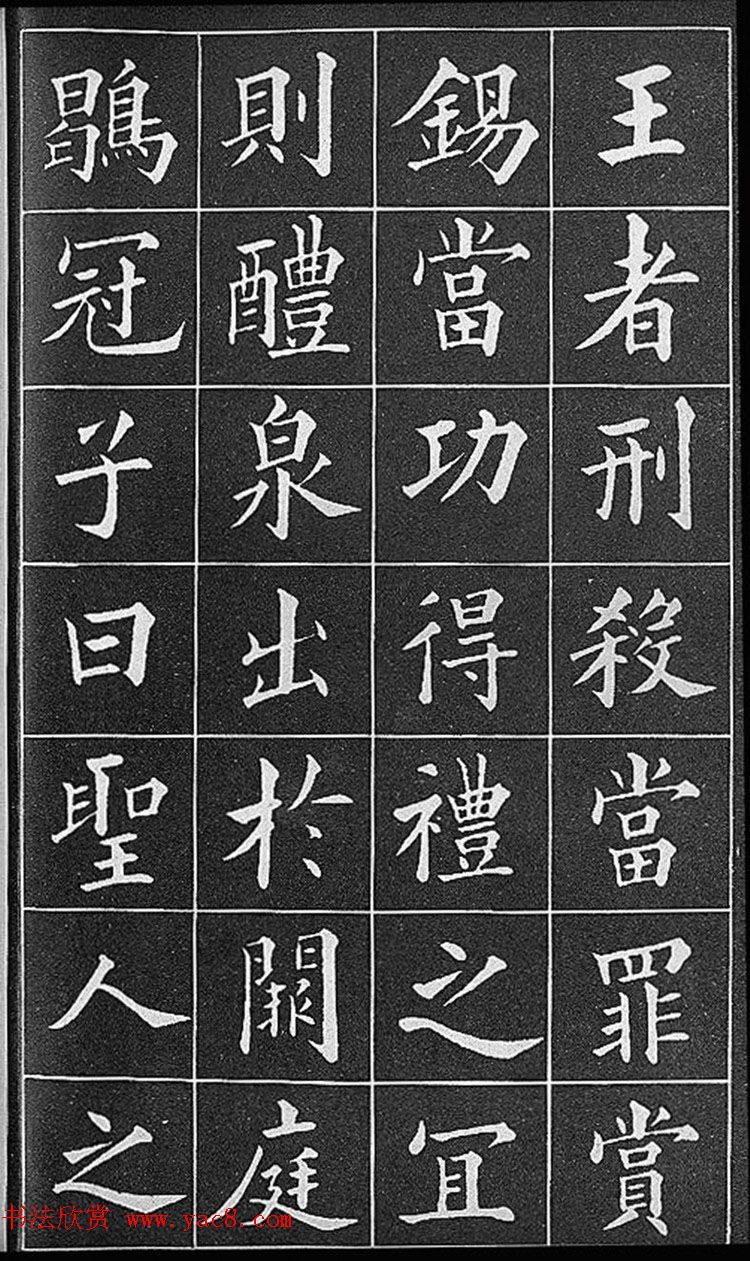 王者刑殺當罪賞
錫當功得禮之冝
則醴泉出於闕庭
鶡冠子曰聖人之
书法欣赏 www.yac8.com